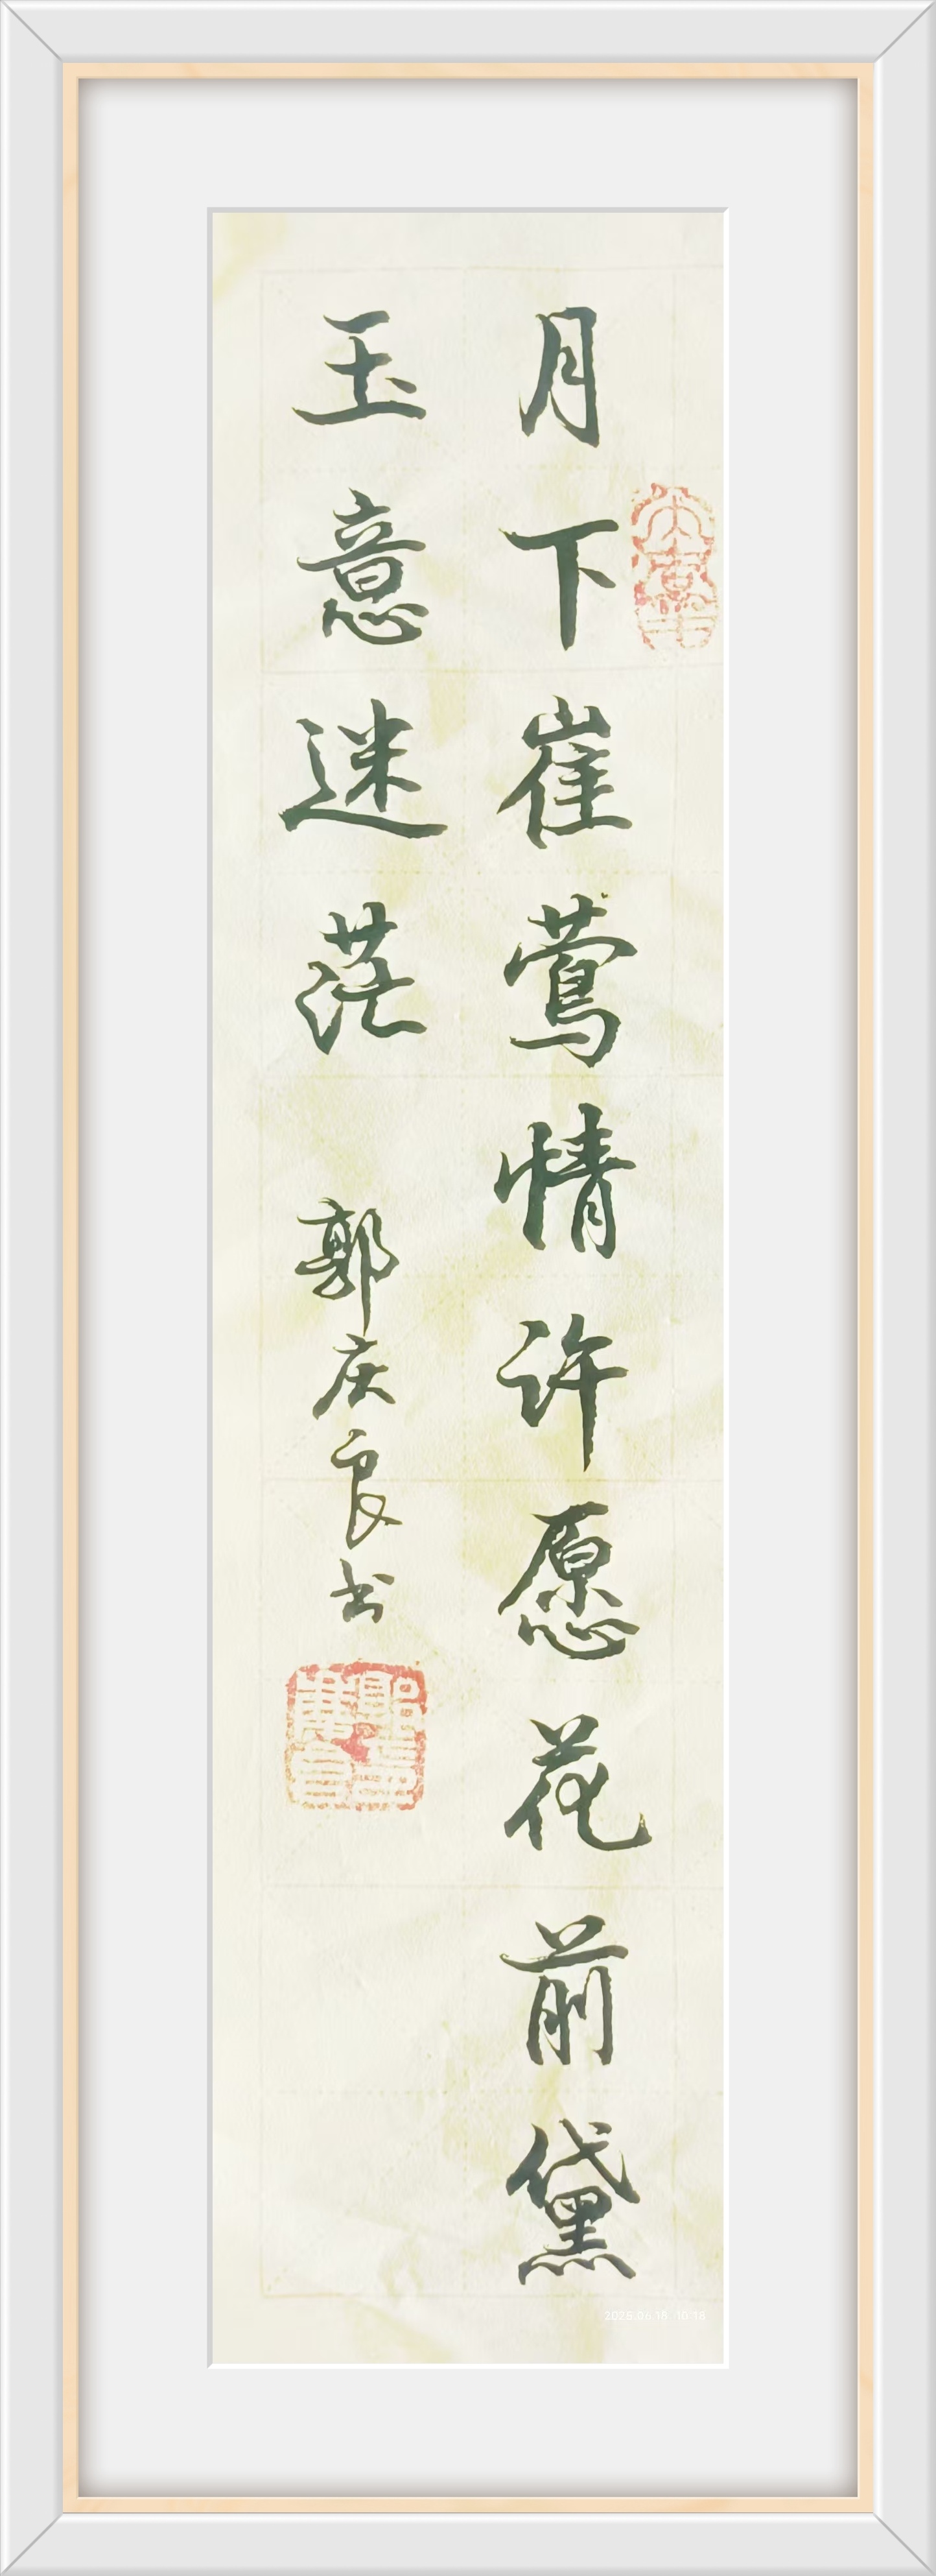 月下崔莺情许愿花前黛
玉意迷茫
郭庆良书
2025.06.18 10:18